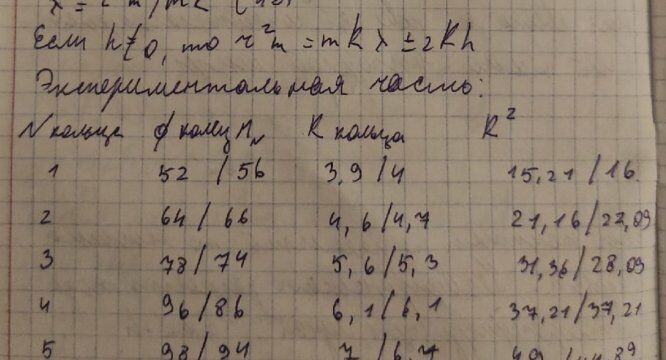 Если h≠0, то r²m = mRλ ± 2Rh
Экспериментальная часть:
N кольца ∅ колец R кольца R²
1 52 / 56 3,9 / 4 15,21 / 16
2 64 / 66 4,6 / 4,7 21,16 / 22,09
3 78 / 74 5,6 / 5,3 31,36 / 28,09
4 96 / 86 6,1 / 6,1 37,21 / 37,21
5 98 / 94 7 /